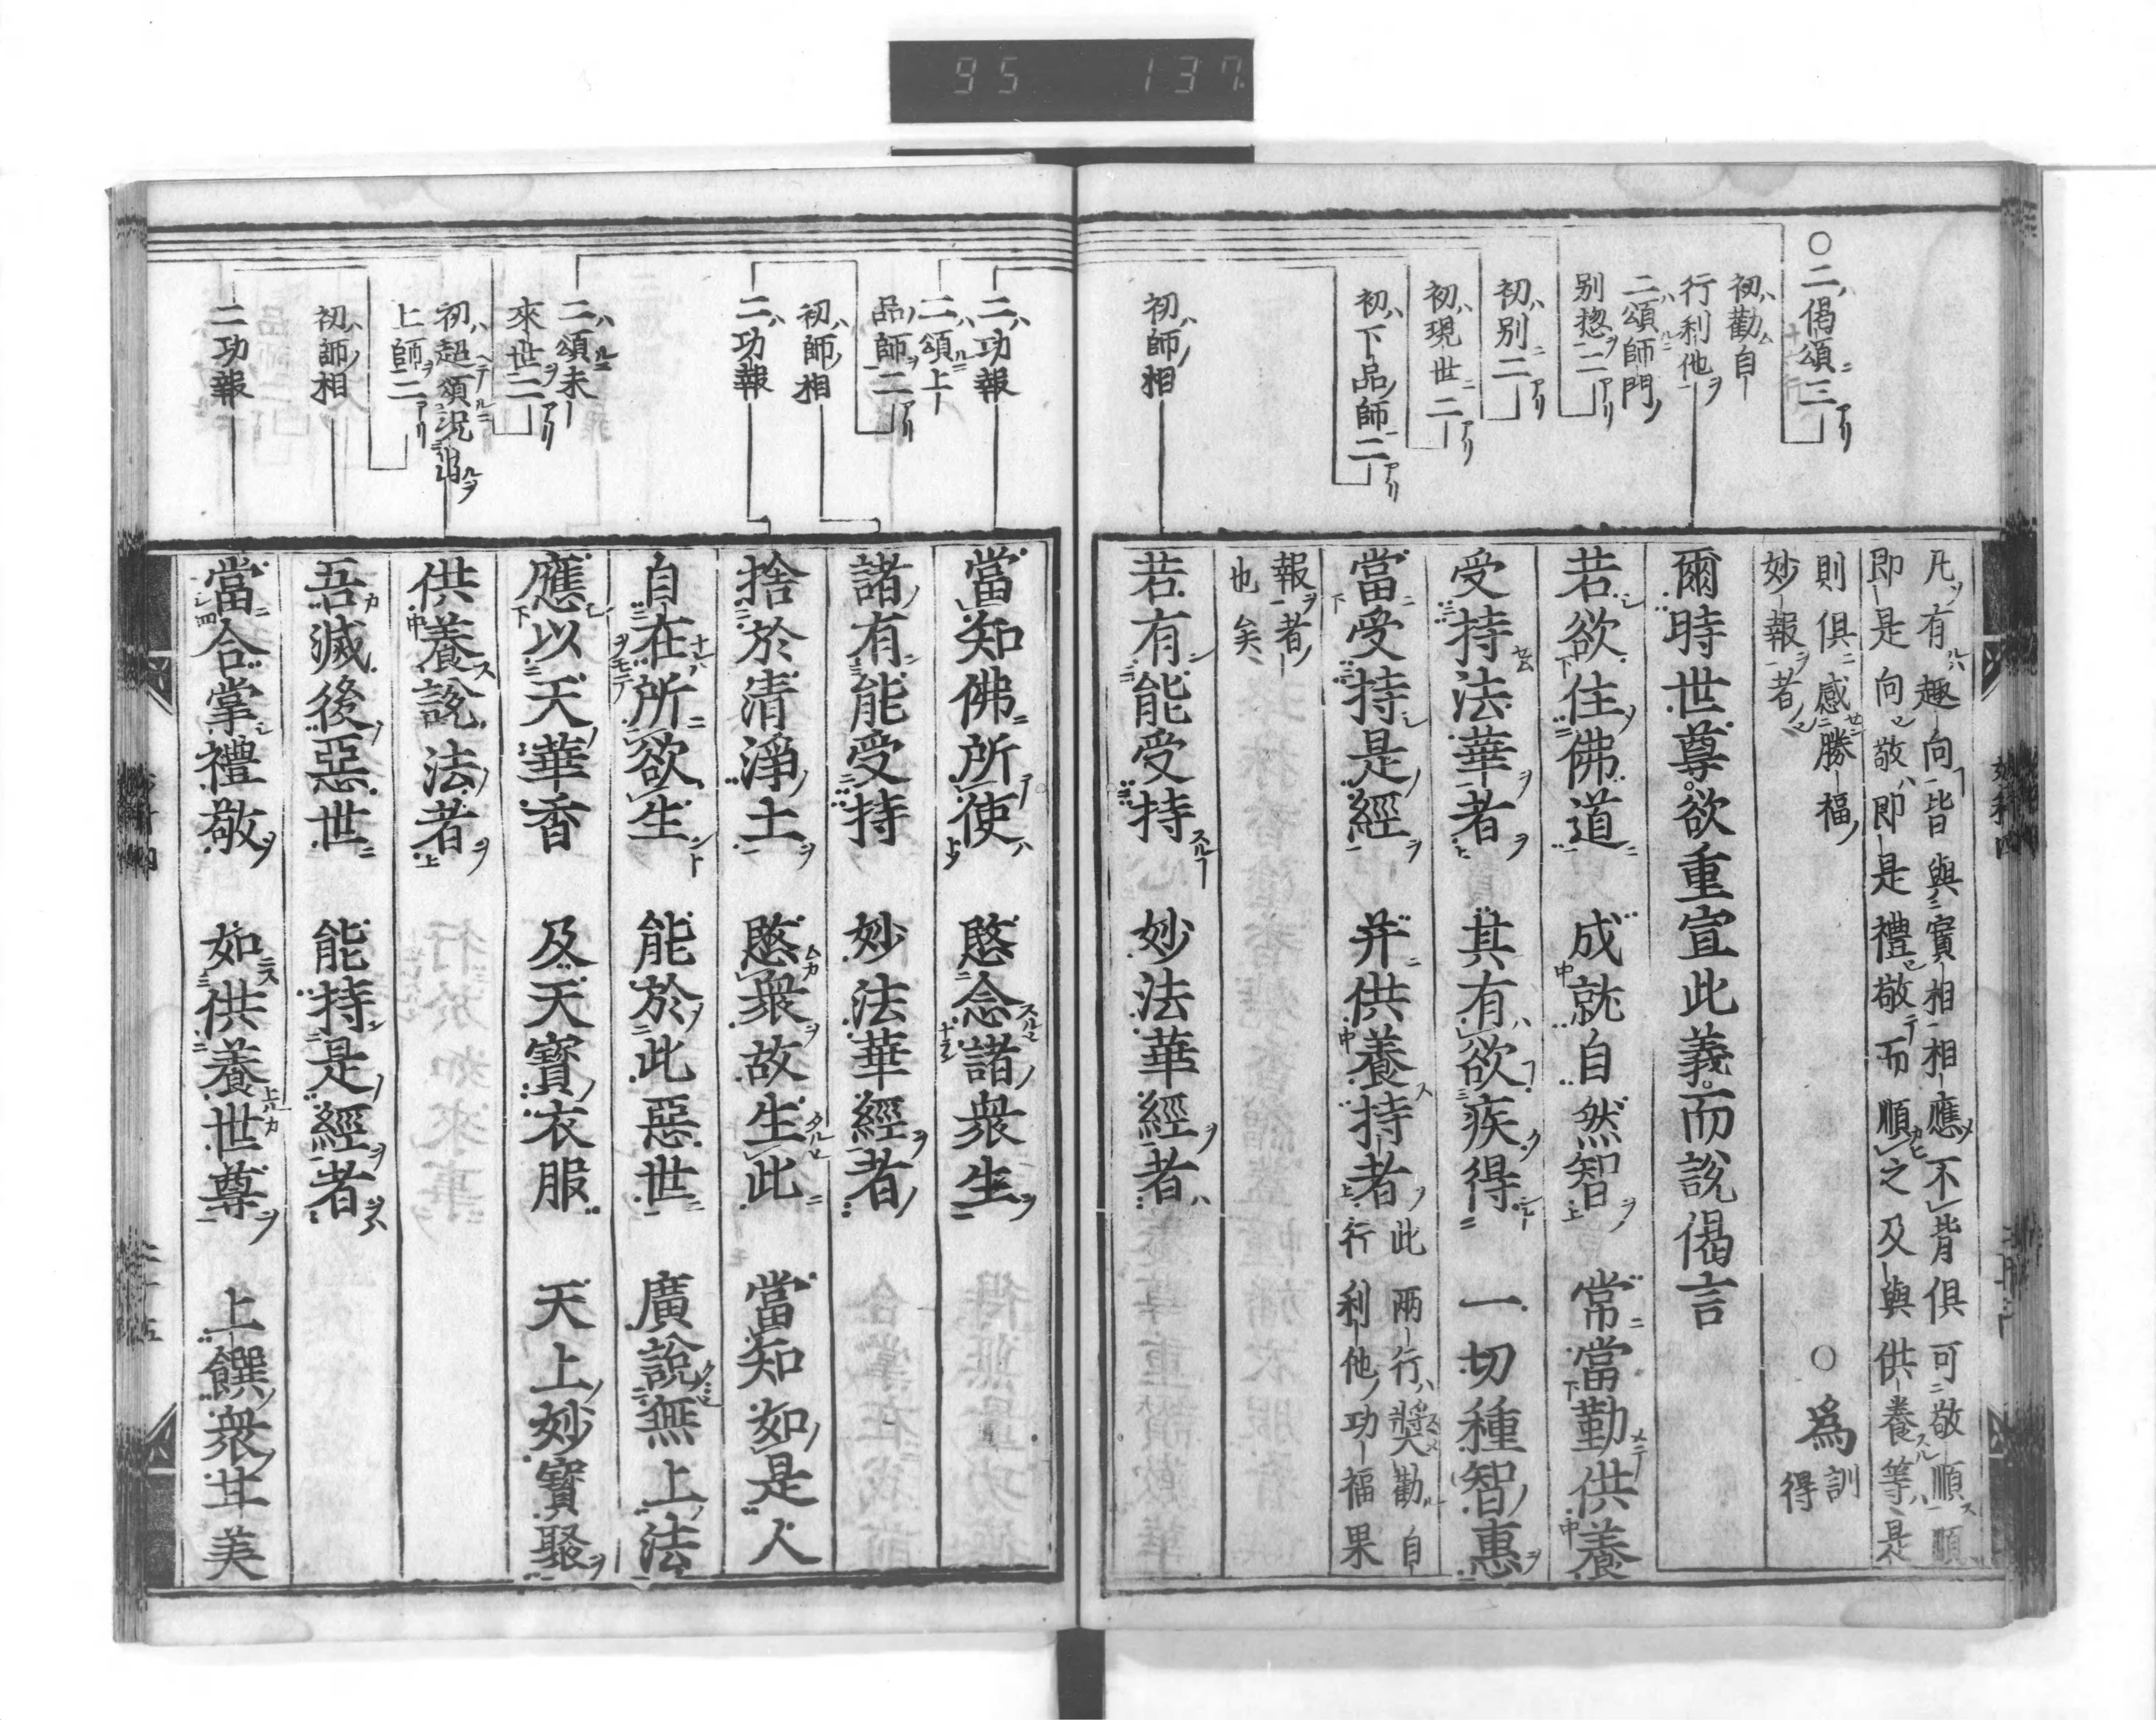 95 137
○二偈頌三
初勸自
行利他
二頌師門
別揔二
初別二
初現世二
初下品師二
初師相
凡有趣向皆與實相相應不背俱可敬順順
即是向敬即是禮敬而順之及與供養等是
則俱感勝福 ○為訓
妙報者 得
爾時世尊欲重宣此義而說偈言
若欲住佛道 成就自然智 常當勤供養
受持法華者 其有欲疾得 一切種智惠
當受持是經 并供養持者 此兩行獎勸自
行利他功福果
報者
也矣
若有能受持 妙法華經者
二功報
二頌上
品師二
初師相
二功報
二頌未
來世二
初超頌況出
上師二
初師相
二功報
當知佛所使 愍念諸衆生
諸有能受持 妙法華經者
捨於清淨土 愍衆故生此 當知如是人
自在所欲生 能於此惡世 廣說無上法
應以天華香 及天寶衣服 天上妙寶聚
供養說法者
吾滅後惡世 能持是經者
當合掌禮敬 如供養世尊 上饌衆甘美